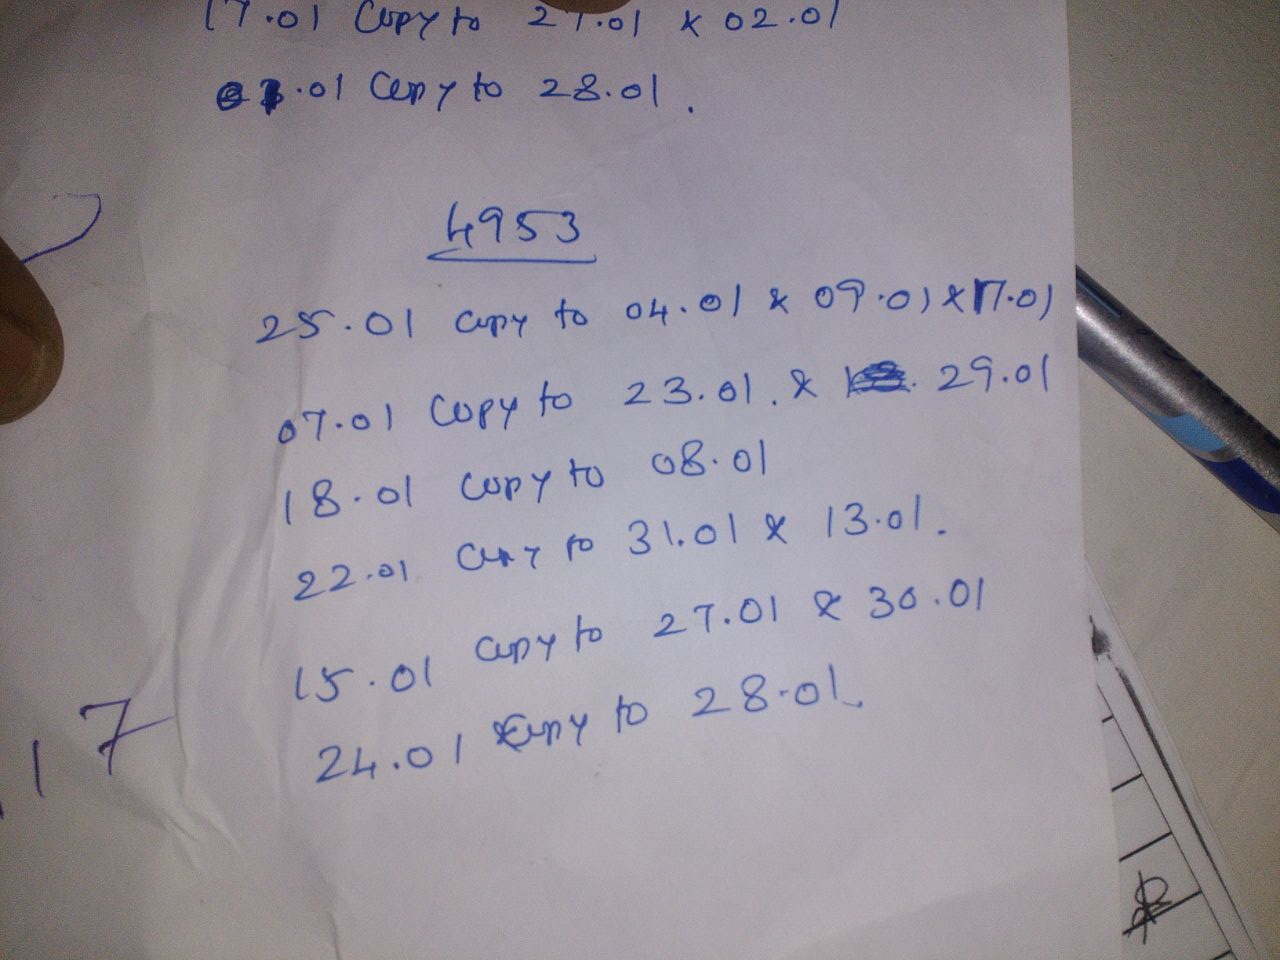 17.01 Copy to 27.01 & 02.01
.01 Copy to 28.01.
4953
25.01 copy to 04.01 & 09.01 & 17.01
07.01 Copy to 23.01. & 29.01
18.01 Copy to 08.01
22.01 Copy to 31.01 & 13.01.
15.01 Copy to 27.01 & 30.01
24.01 Copy to 28.01.
17